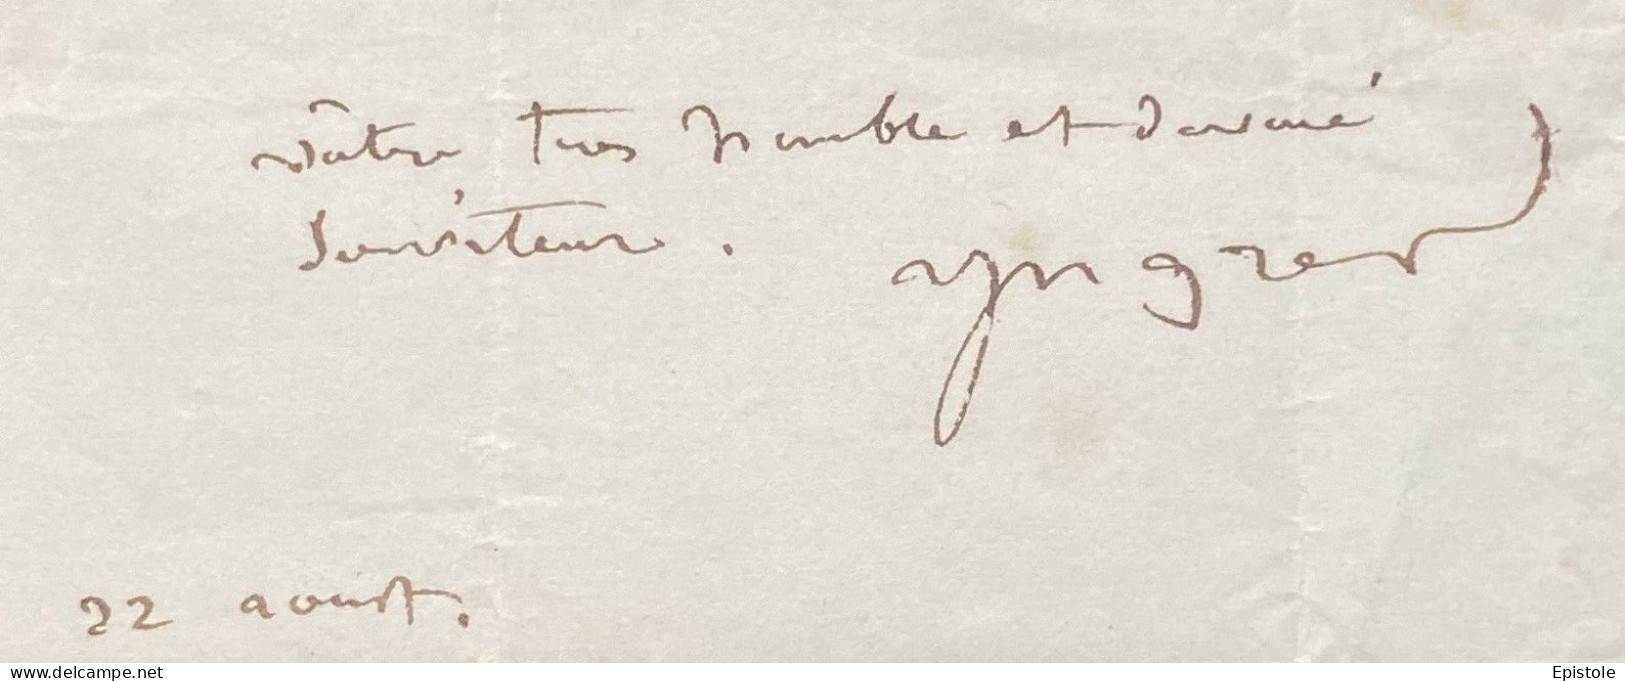 votre tres humble et devoué
Serviteur.
Ingres
22 aoust.
www.delcampe.net
Epistole